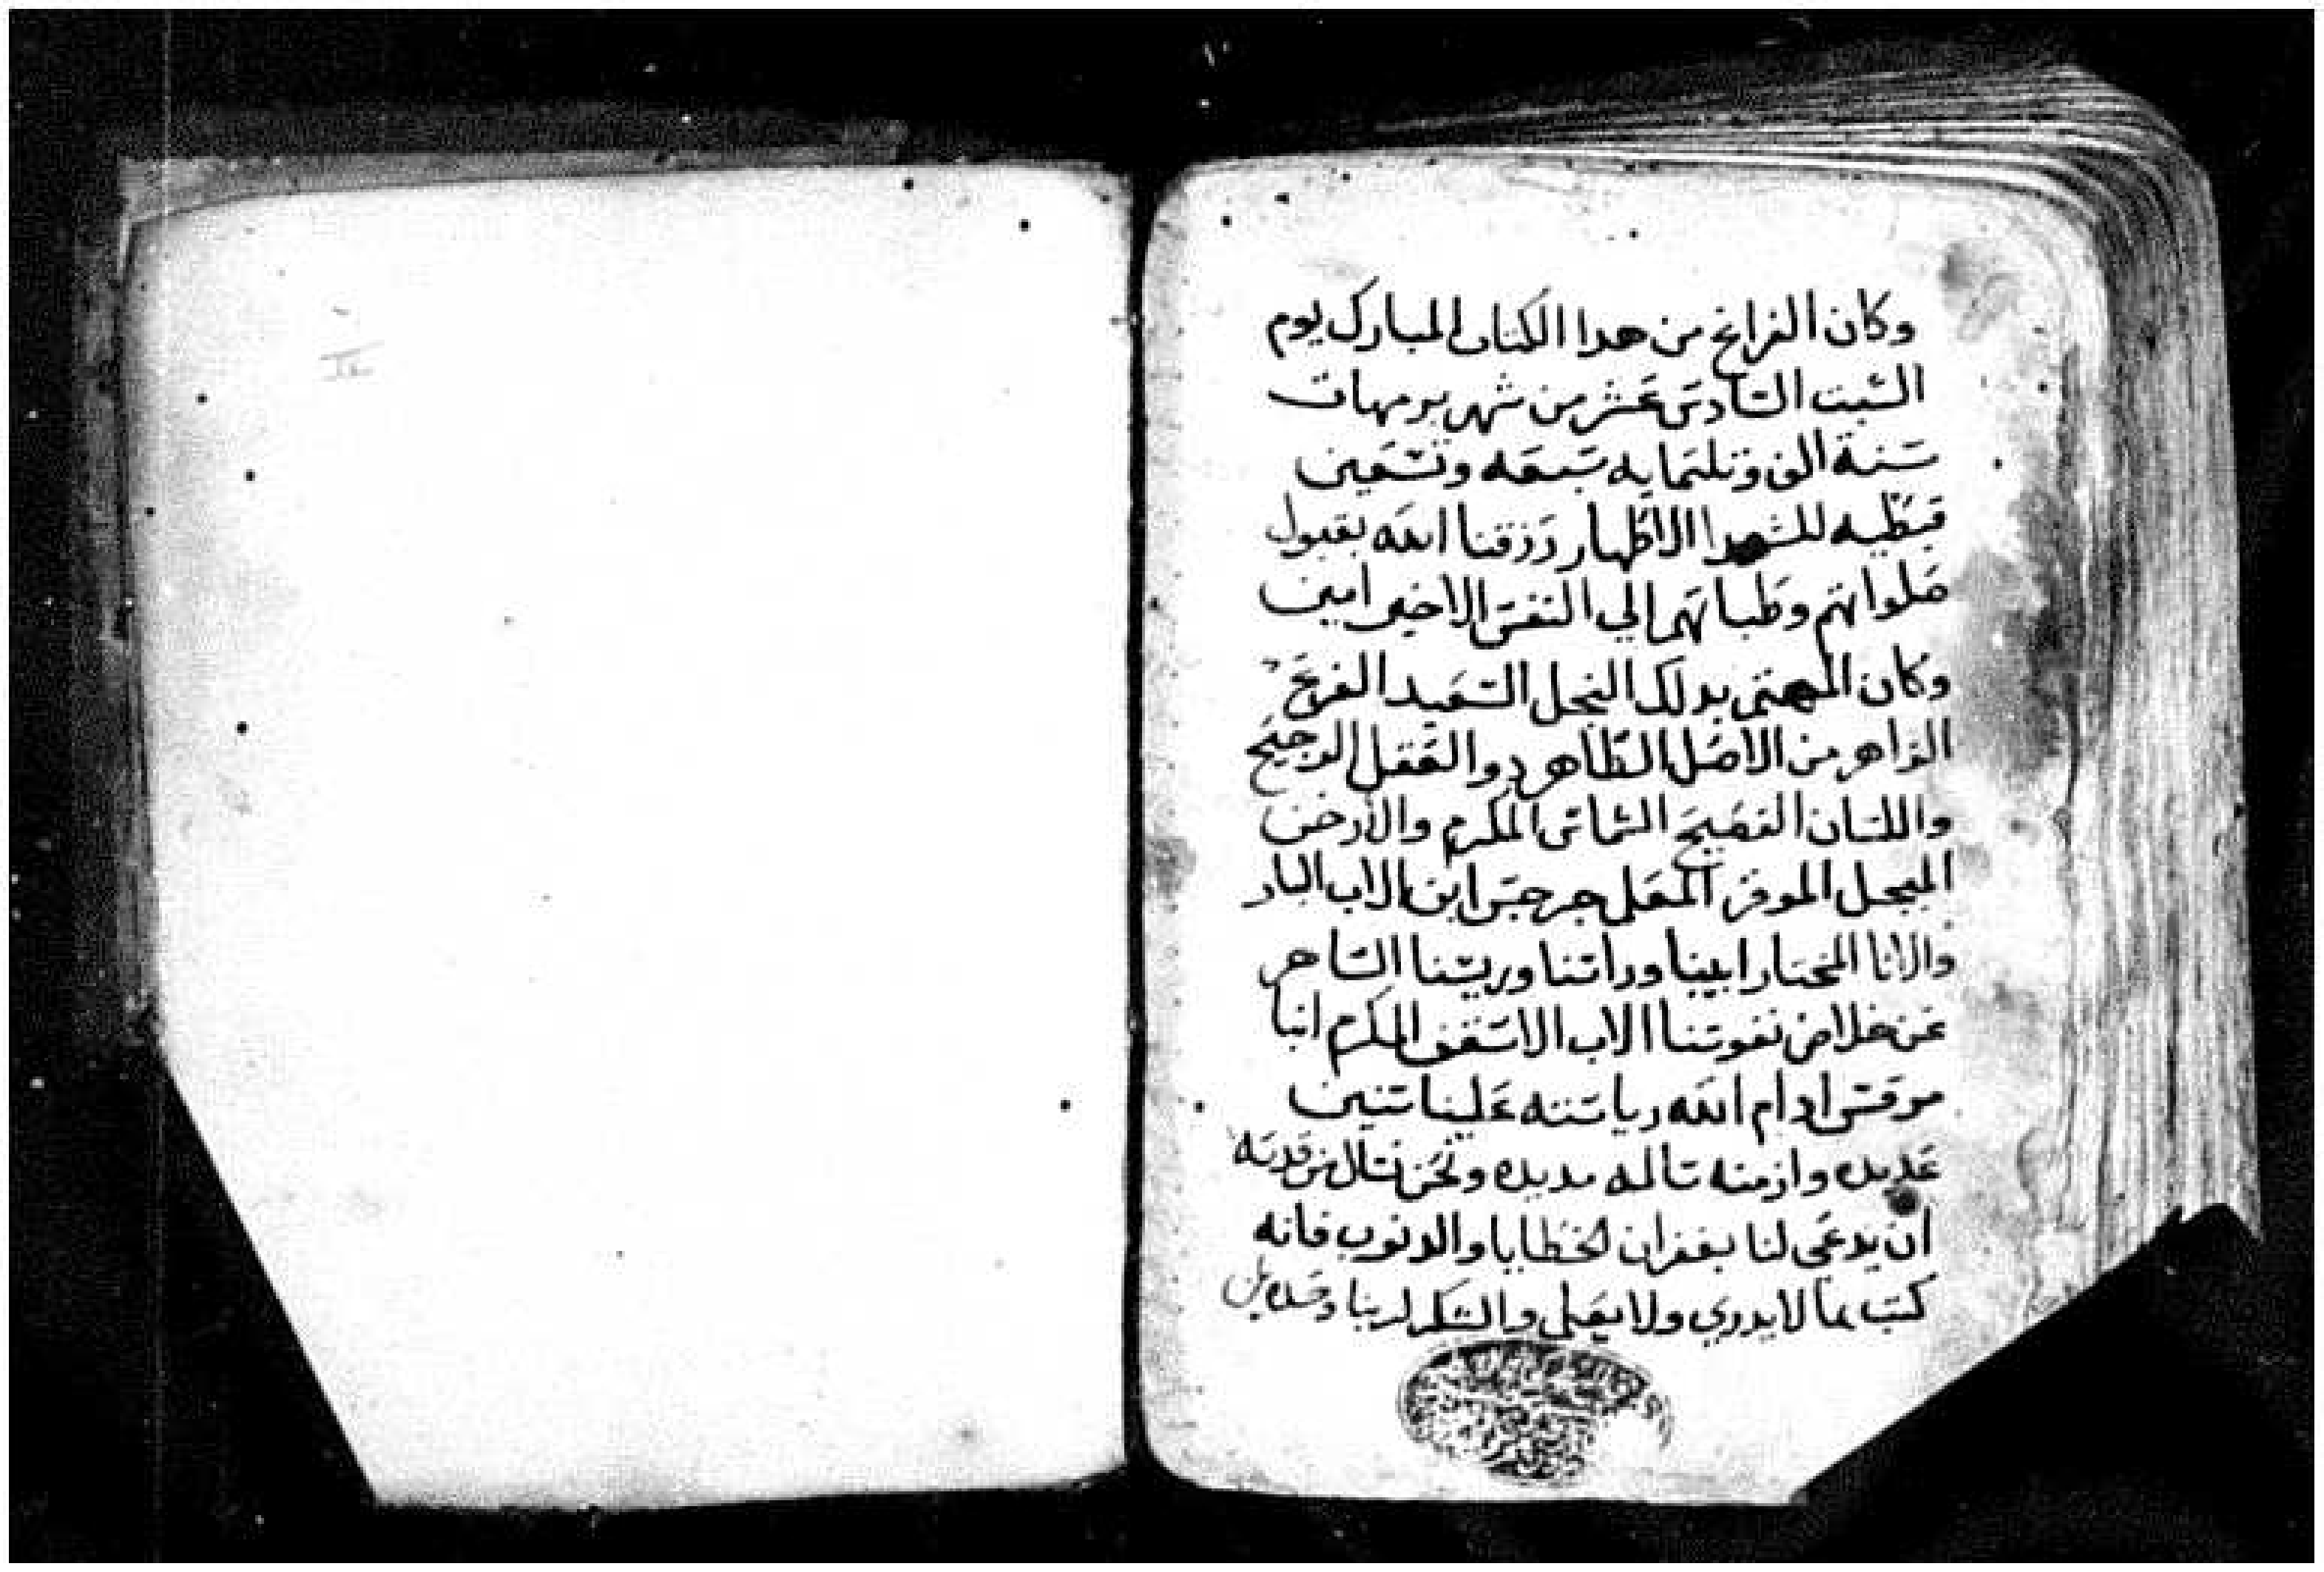 وكان الفراغ من هدا الكتاب المبارك يوم
السبت السادس عشر من شهر برمهات
سنة الف وتلتمايه سبعه وتسعين
قبطيه للشهدا الاطهار رزقنا الله بقبول
صلواتهم وطباتهم الي النفس الاخير امين
وكان المهتم بدلك النجل السعيد الفرع
الزاهر من الاصل الطاهر دو العقل الرجيح
واللسان الفصيح الشماس المكرم والارخن
المبجل الموقر المعلم جرجس ابن الاب البار
والانا المختار ابينا وراسنا وريسنا الساهر
عن خلاص نفوسنا الاب الاسقف المكرم انبا
مرقس ادام الله رياسته علينا سنين
عديده وازمنه سالمه مديده ونحن نسال من قدسه
ان يدعي لنا بغفران الخطايا والدنوب فانه
كتب بما لا يدري ولا يعلم والشكر لربنا